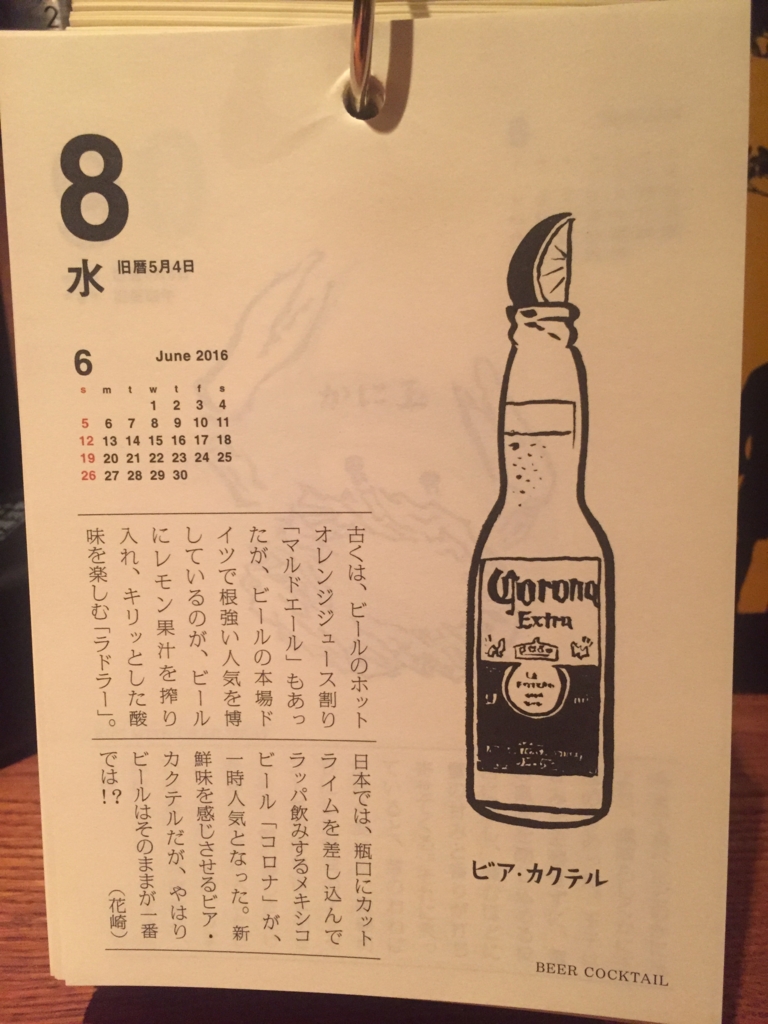 8
水
旧暦5月4日
6
June 2016
s m t w t f s
1 2 3 4
5 6 7 8 9 10 11
12 13 14 15 16 17 18
19 20 21 22 23 24 25
26 27 28 29 30
古くは、ビールのホット
オレンジジュース割り
「マルドエール」もあっ
たが、ビールの本場ド
イツで根強い人気を博
しているのが、ビール
にレモン果汁を搾り
入れ、キリッとした酸
味を楽しむ「ラドラー」。
日本では、瓶口にカット
ライムを差し込んで
ラッパ飲みするメキシコ
ビール「コロナ」が、
一時人気となった。新
鮮味を感じさせるビア・
カクテルだが、やはり
ビールはそのままが一番
では!?
(花崎)
Corona
Extra
ビア・カクテル
BEER COCKTAIL